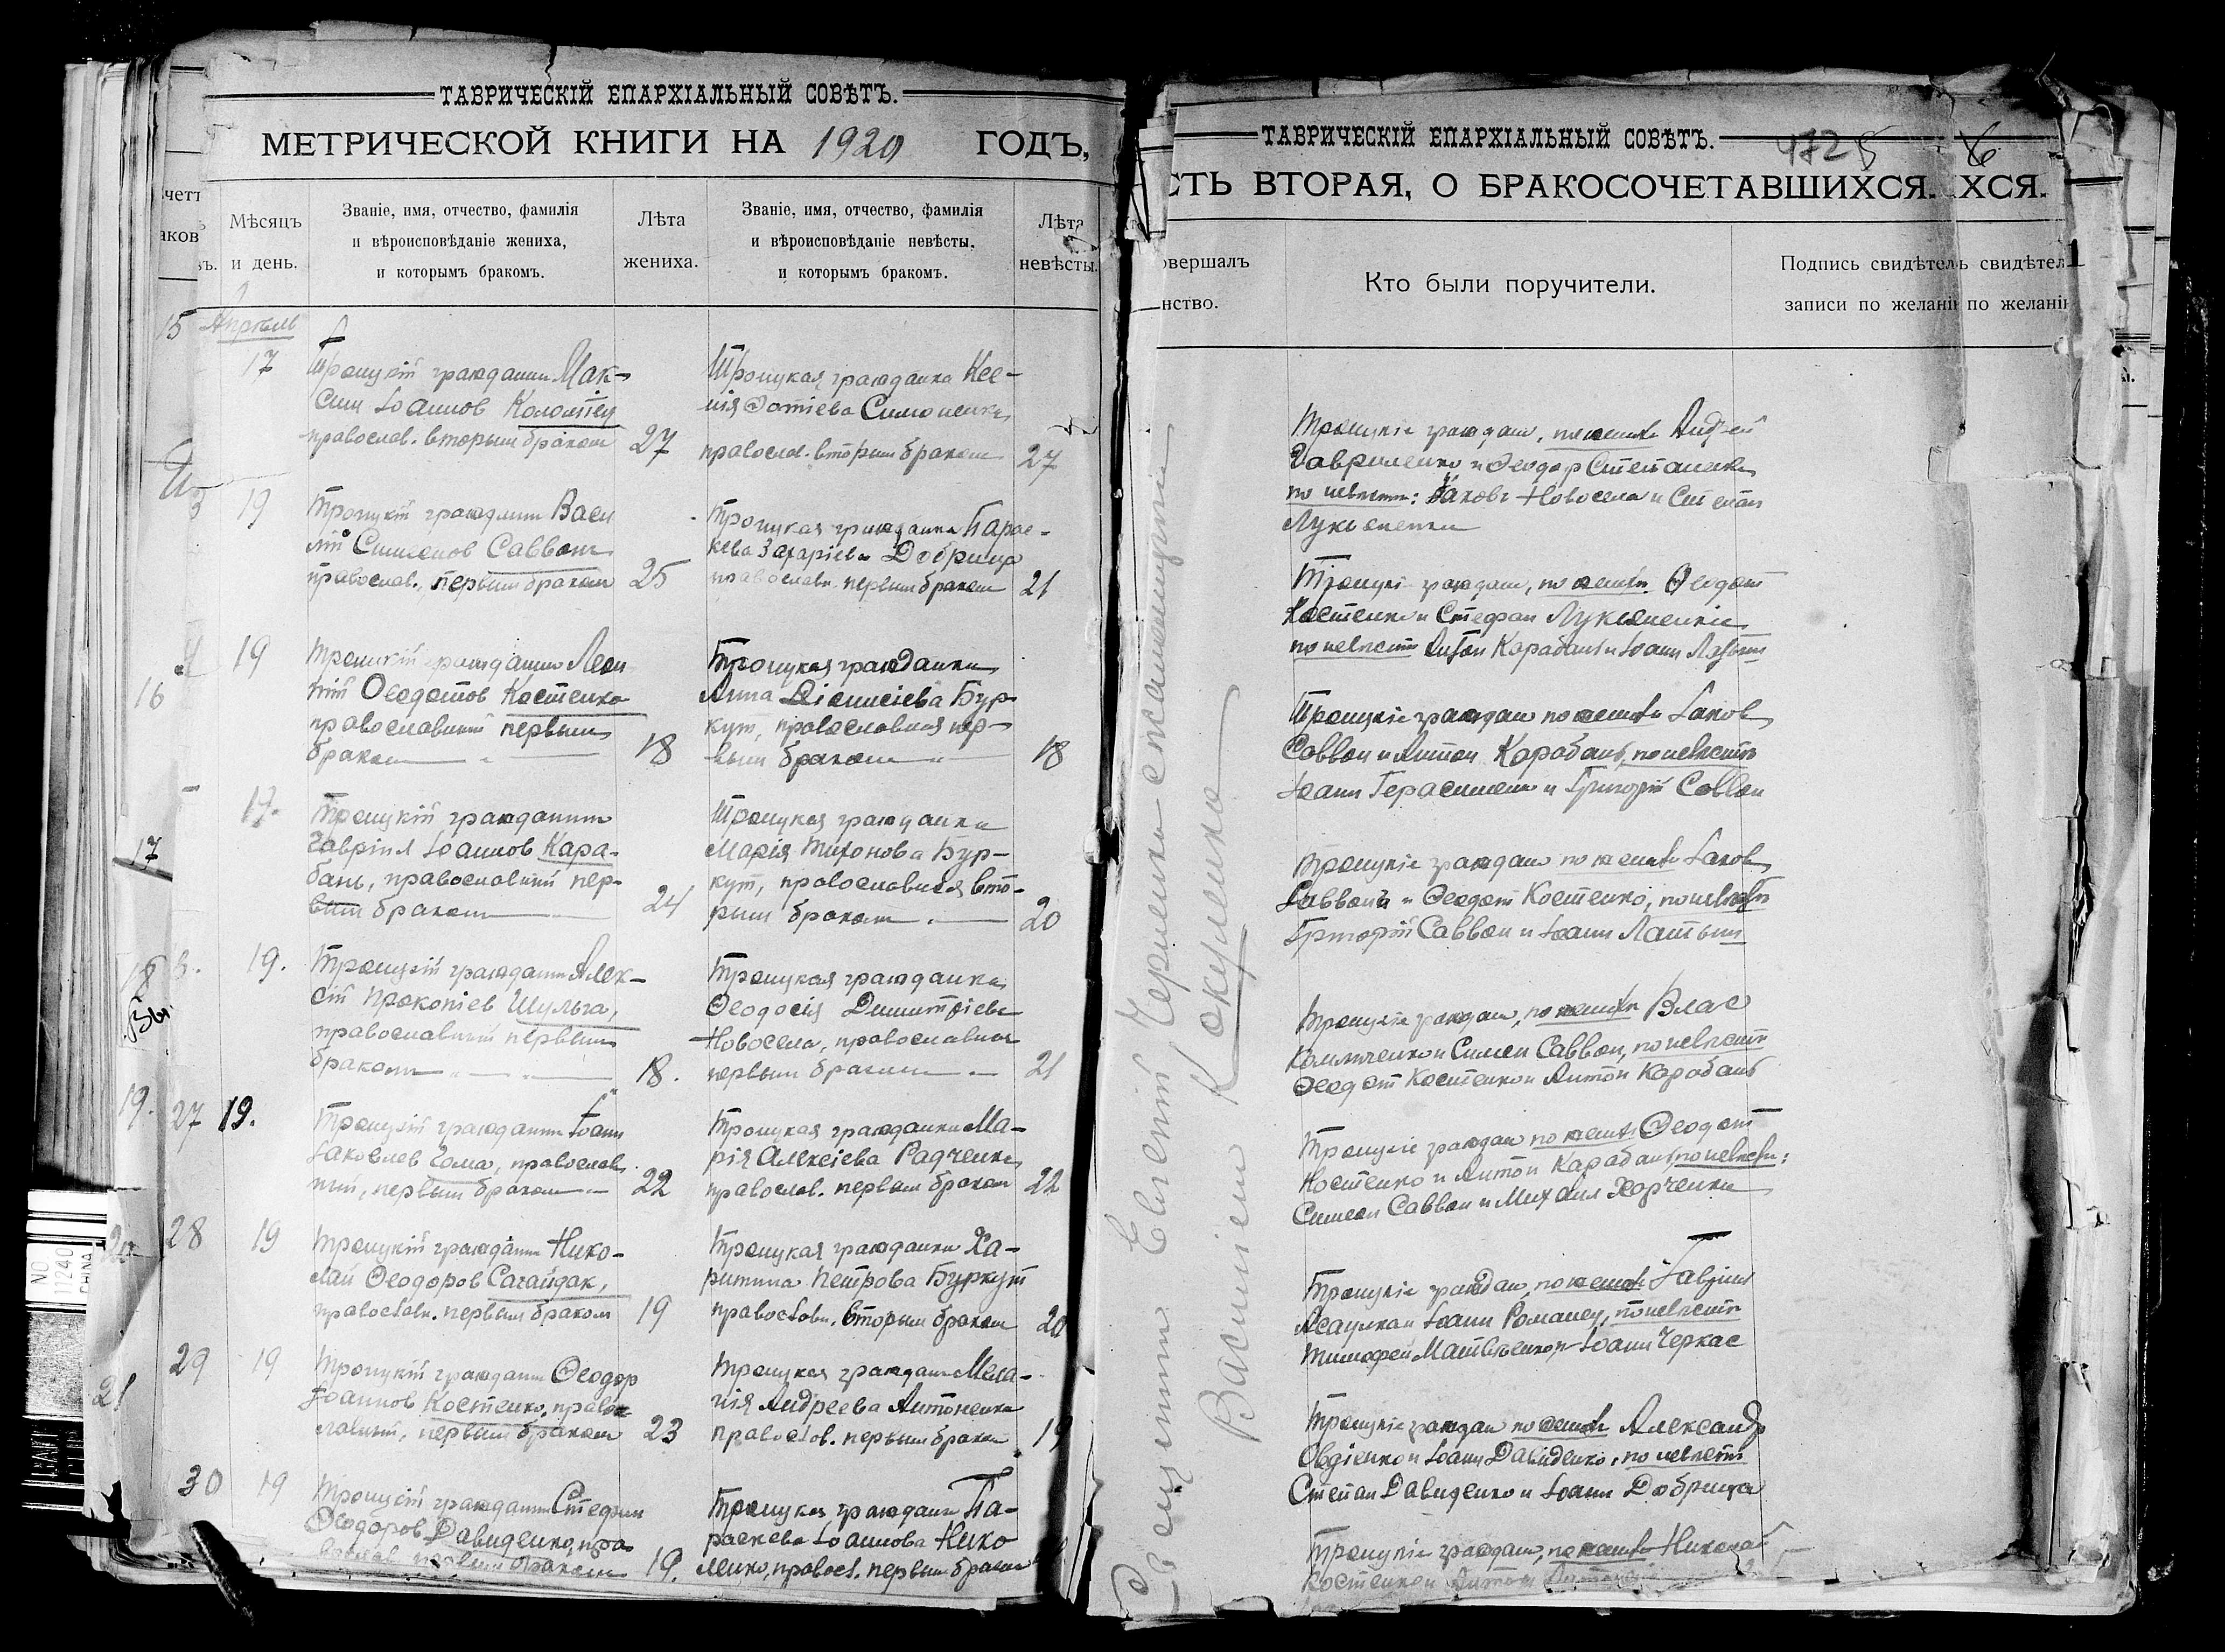 ТАВРИЧЕСКІЙ ЕПАРХІАЛЬНЫЙ СОВѢТЪ.
МЕТРИЧЕСКОЙ КНИГИ НА 1920 ГОДЪ,
Мѣсяцъ и день.
Званіе, имя, отчество, фамилія
и вѣроисповѣданіе жениха,
и которымъ бракомъ.
Лѣта
жениха.
Званіе, имя, отчество, фамилія
и вѣроисповѣданіе невѣсты,
и которымъ бракомъ.
Лѣта
невѣсты.
15 Апрѣль
17
Троицкій гражданин Мак-
сим Іоаннов Коломіец
православ. вторым браком 27
Троицкая гражданка Ксе-
нія Фотіева Симоненко
православ. вторым браком 27
19
Троицкій гражданин Васи
лій Симеонов Саввон
православ., первым браком 25
Троицкая гражданка Парас-
кева Захаріева Добрица
православн. первым браком 21
16
19
Троицкій гражданин Леон
тій Феодотов Костенко
православный первым
браком 18
Троицкая гражданка
Анна Діонисіева Бур
кут, православная пер-
вым браком 18
17
17.
Троицкій гражданин
Гавріил Іоаннов Кара-
бань, православный пер-
вым браком 24
Троицкая гражданка
Марія Тихонова Бур-
кут, православная вто-
рым браком 20
18
19.
Троицкій гражданин Алек-
сій Прокопіев Шульга,
православный первым
браком 18.
Троицкая гражданка
Феодосія Димитріева
Новосела, православная
первым браком 21
19. 27 19.
Троицкій гражданин Іоанн
Іаковлев Гома, православ
ный, первым браком 22
Троицкая гражданка Ма-
рія Алексіева Радченко
православ. первым браком 22
28 19
Троицкій гражданин Нико-
лай Феодоров Сагайдак,
православн. первым браком 19
Троицкая гражданка Ха-
ритина Петрова Буркут
православн. вторым браком 20
21 29 19
Троицкій гражданин Феодор
Іоаннов Костенко, право
славный, первым браком 23
Троицкая граждан Мела-
нія Андреева Антоненко
православ. первым браком 19
30 19
Троицкій гражданин Стефан
Феодоров Давиденко, пра
вослав. первым браком 19.
Троицкая граждан Па-
раскева Іоаннова Нико
ленко, правосл. первым браком
ТАВРИЧЕСКІЙ ЕПАРХІАЛЬНЫЙ СОВѢТЪ.
СТЬ ВТОРАЯ, О БРАКОСОЧЕТАВШИХСЯ. ХСЯ.
овершалъ
нство.
Кто были поручители.
Подпись свидѣтел ь свидѣтел
записи по желані по желані
Священник Евгеній Черненко с псаломщиком
Василіем Кокуленко
Троицкіе граждан, по женихе Андрей
Гавриленко и Феодор Степаненко
по невѣсте: Іаков Новосела и Стефан
Лукьяненко
Троицкіе граждан, по женихе Феодот
Костенко и Стефан Лукьяненко
по невѣсте Антон Карабань и Іоанн
Троицкіе граждан по женихе Іаков
Саввон и Антон Карабань, по невѣсте
Іоанн Герасименко и Григорій Саввон
Троицкіе граждан по женихе Іаков
Саввон и Феодот Костенко, по невѣсте
Григорій Саввон и Іоанн
Троицкіе граждан, по женихе Влас
и Симеон Саввон, по невѣсте
Феодот Костенко и Антон Карабань
Троицкіе граждан по женихе Феодот
Костенко и Антон Карабань, по невѣсте:
Симеон Саввон и Михаил Харченко
Троицкіе граждан, по женихе Гавріил
Асаулка и Іоанн Романец, по невѣсте
Тимофей Матвѣенко и Іоанн Черкас
Троицкіе граждан по женихе Александр
Овдіенко и Іоанн Давиденко, по невѣсте
Степан Давиденко и Іоанн Добрица
Троицкіе граждан, по женихе Николай
Костенко и Антон